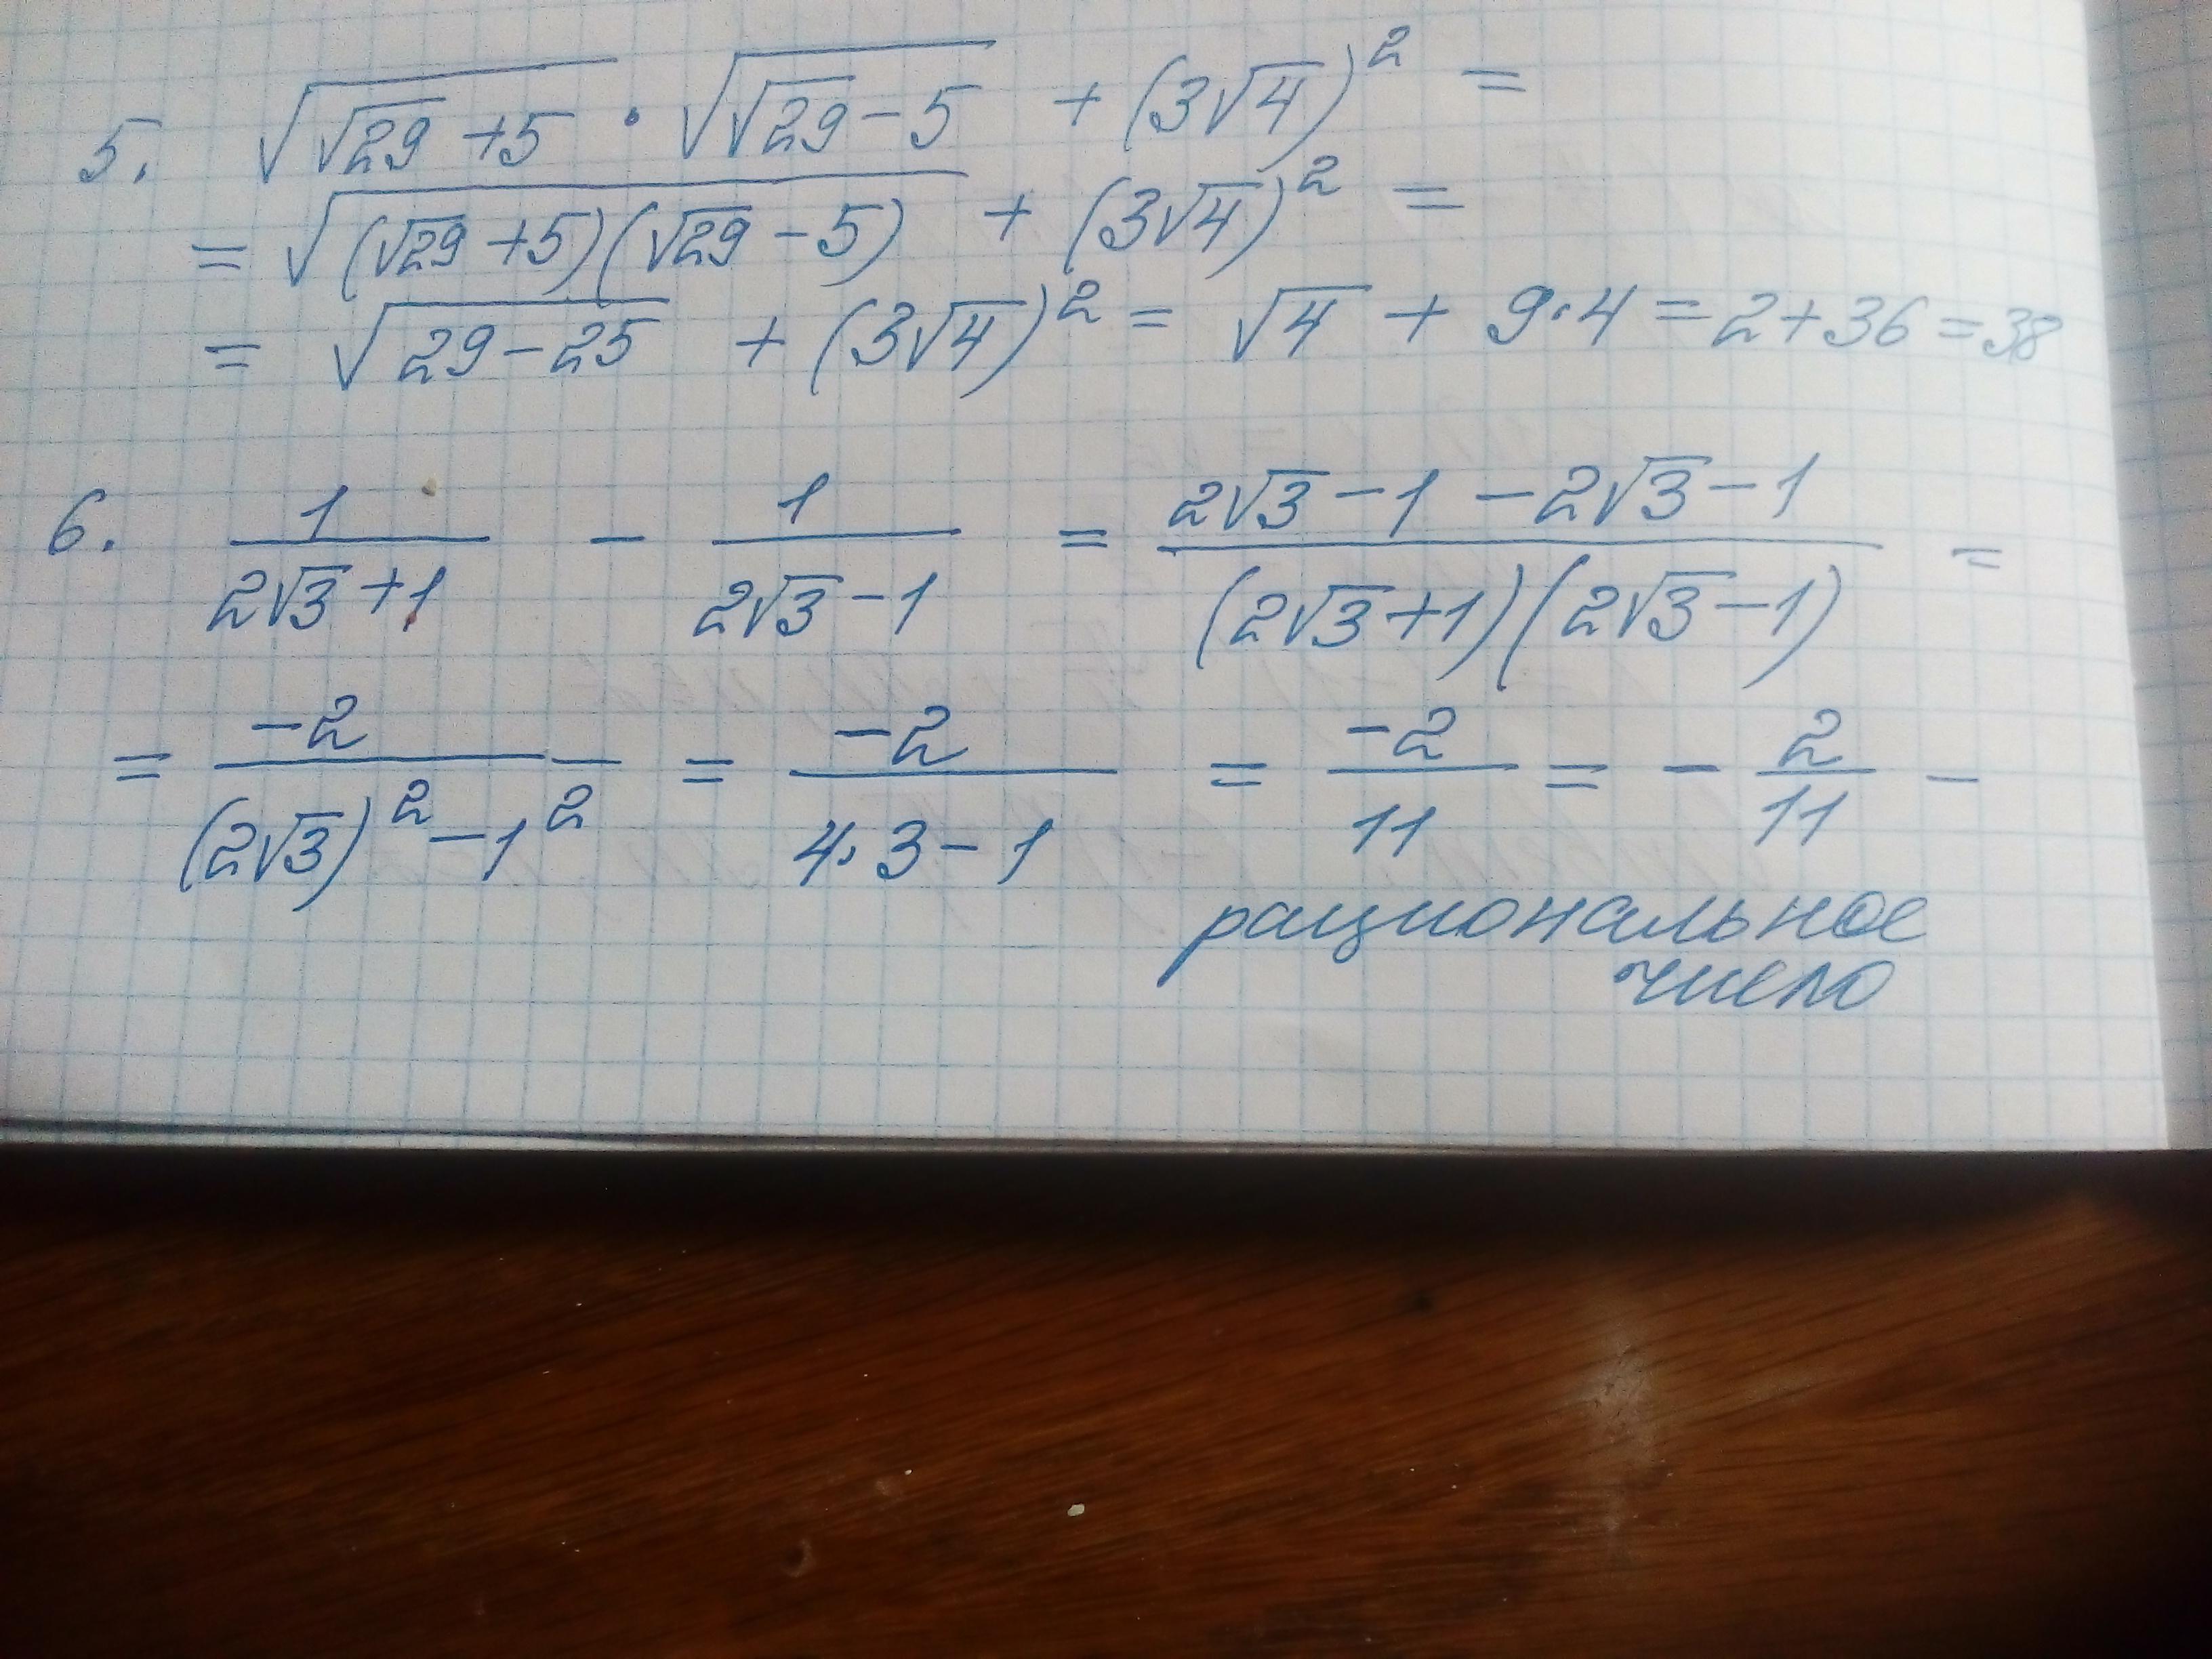 5. √(√29 + 5) · √(√29 − 5) + (3√4)² =
= √((√29 + 5)(√29 − 5)) + (3√4)² =
= √(29 − 25) + (3√4)² = √4 + 9·4 = 2 + 36 = 38
6. 1/(2√3 + 1) − 1/(2√3 − 1) = (2√3 − 1 − 2√3 − 1)/((2√3 + 1)(2√3 − 1)) =
= −2/((2√3)² − 1²) = −2/(4·3 − 1) = −2/11 = − 2/11 −
рациональное
число